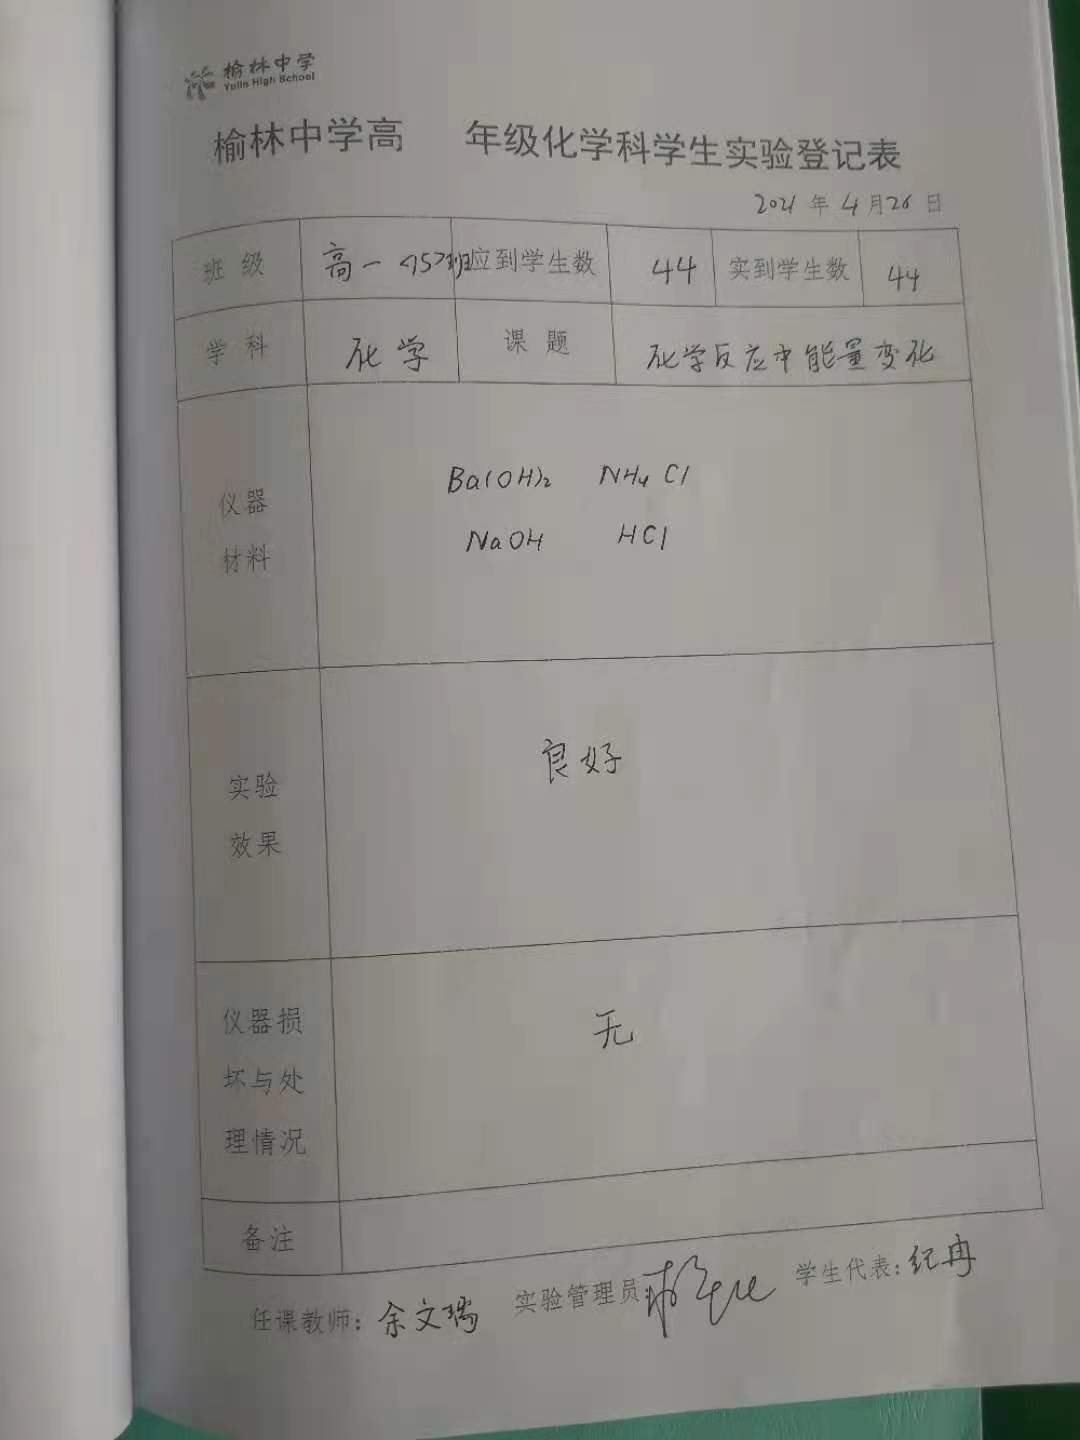 榆林中学
Yulin High School
榆林中学高 年级化学科学生实验登记表
2021 年 4 月 26 日
班 级 高一<15>班 应到学生数 44 实到学生数 44
学 科 化学 课 题 化学反应中能量变化
仪器
材料
Ba(OH)₂ NH₄Cl
NaOH HCl
实验
效果
良好
仪器损
坏与处
理情况
无
备注
任课教师：余文瑞 实验管理员： 学生代表：纪冉